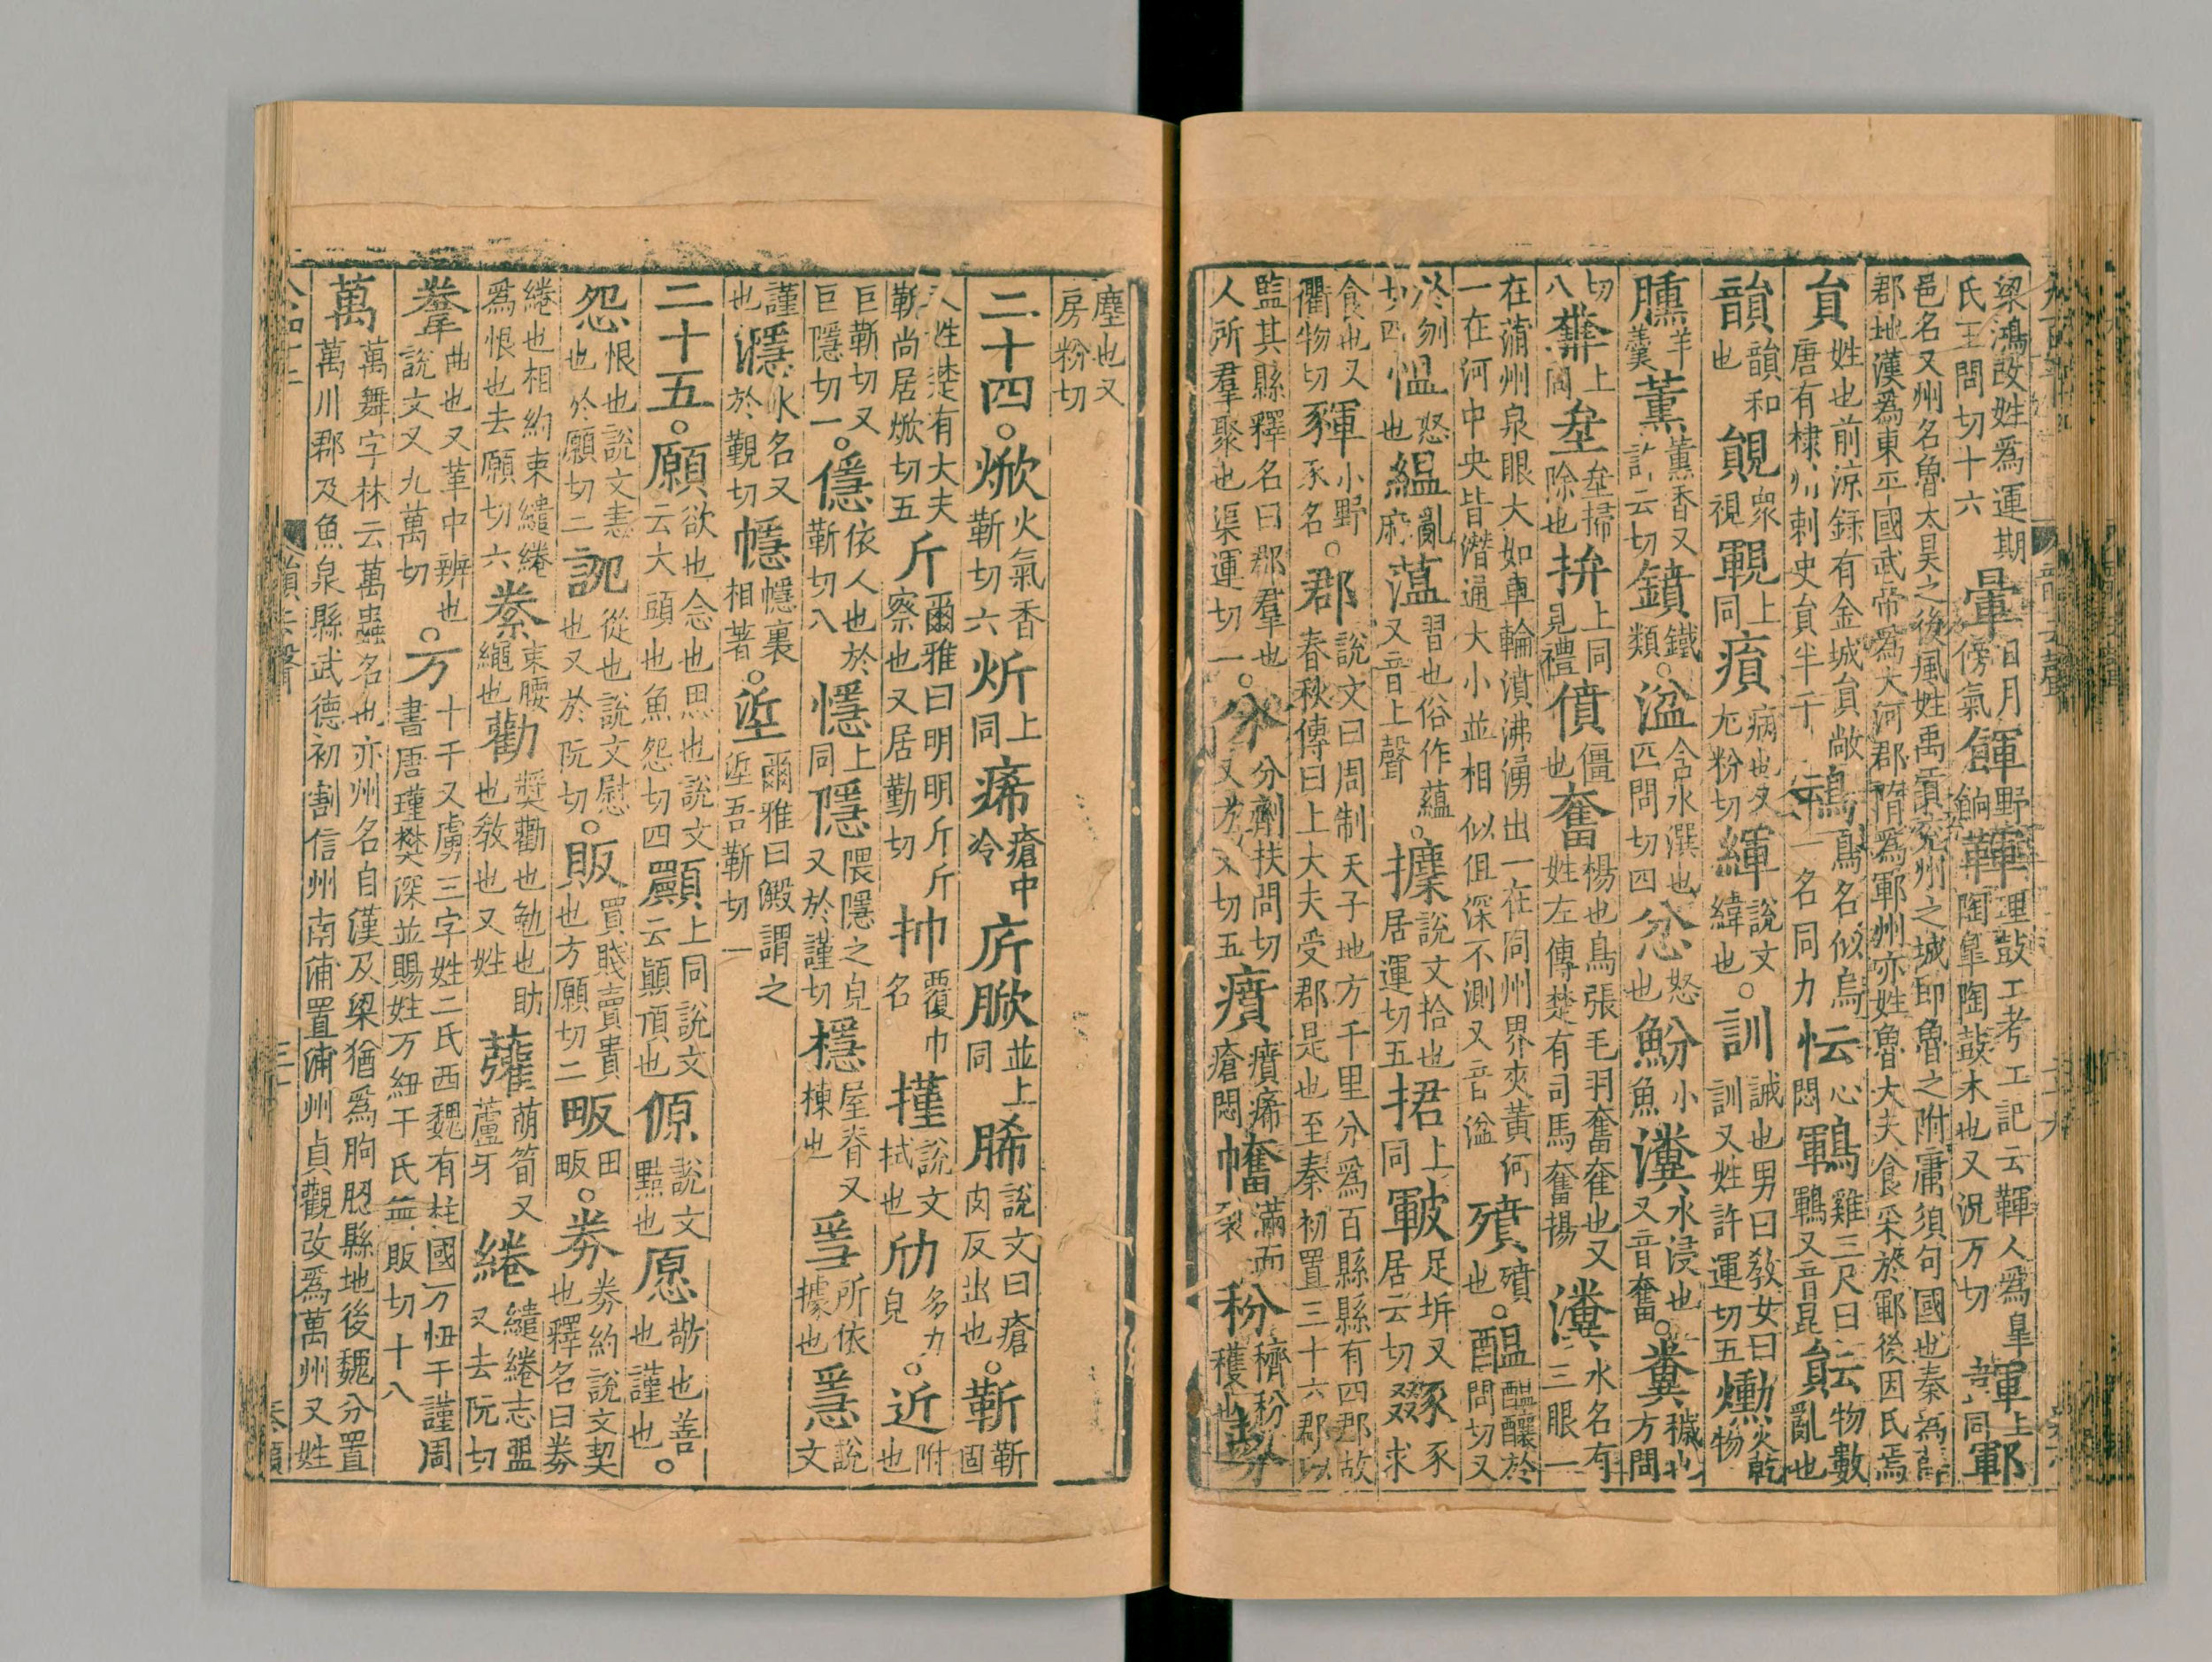 梁鴻改姓爲運期氏王問切十六暈日月傍氣餫野餉韗理鼓工考工記云韗人爲皐陶皐陶鼓木也又況万切上同鄆
邑名又州名魯太昊之後風姓禹貢兖州之城即魯之附庸須句國也秦為郡地漢爲東平國武帝爲大河郡隋爲鄆州亦姓魯大夫食采於鄆後因氏焉
貟姓也前涼録有金城貟敞唐有棣州刺史貟半千鳥名似烏一名同力忶心悶鶤雞三尺曰鶤又音昆物數亂也
韻韻和也覞眾視上同病也又尤粉切緷說文緯也。訓誡也男曰敎女曰訓又姓許運切五爋火乾物
臐羊羹薰薰香又許云切鐼鐵類。湓含水潠也匹問切四忿怒也魵小魚瀵水浸也又音奮。糞穢也方問
切八上同坌坌掃除也拚上同見禮僨僵也奮揚也鳥張毛羽奮奞也又姓左傳楚有司馬奮揚瀵水名有三眼一
在蒲州泉眼大如車輪濆沸涌出一在同州界夾黃河一在河中央皆潛通大小並相似俱深不測又音湓殨殨也。醖醖釀於問切又
於刎切四愠怒也緼亂麻薀習也俗作蘊又音上聲。攈說文拾也居運切五捃上同皸足坼又居云切豕求
食也又衢物切小野豕名。郡說文曰周制天子地方千里分爲百縣縣有四郡故春秋傳曰上大夫受郡是也至秦初置三十六郡以
監其縣釋名曰郡羣也人所羣聚也渠運切一。分分劑扶問切又方文切五癀癀痛瘡悶幡滿而裂秎穧秎穫也坋
塵也又房粉切
二十四。焮火氣香靳切六炘上同痚瘡中冷𤵺脪並上同脪說文曰瘡肉反出也。靳靳固
人姓楚有大夫靳尚居焮切五斤爾雅曰明明斤斤察也又居勤切帉覆巾名㨷說文拭也劤多力皃。近附也
巨靳切又巨隱切一。㒚依人也於靳切八㥯上同隱隈隱之皃又於謹切檼屋脊又棟也㥯所依據也㥯說文
謹也濦水名又於觀切幰幰裏相著。垽爾雅曰澱謂之垽吾靳切一
二十五。願欲也念也思也說文云大頭也魚怨切四顚上同說文云顚頂也傆說文黠也愿愨也善也謹也。
怨恨也說文恚也於願切二䛄從也說文慰也又於阮切。販買賤賣貴也方願切二畈田畈。券券約說文契也釋名曰券
綣也相約束繾綣爲恨也去願切六䊎束腰繩也勸奬勸也勉也助也敎也又姓虇萌筍又蘆牙綣繾綣志盟又去阮切
韏曲也又革中辨也說文又九萬切。万十千又虜三字姓二氏西魏有柱國万忸于謹周書唐瑾樊深並賜姓万紐于氏無販切十八
萬萬舞字林云萬蟲名也亦州名自漢及梁猶爲朐䏰縣地後魏分置萬川郡及魚泉縣武德初割信州南浦置浦州貞觀改爲萬州又姓